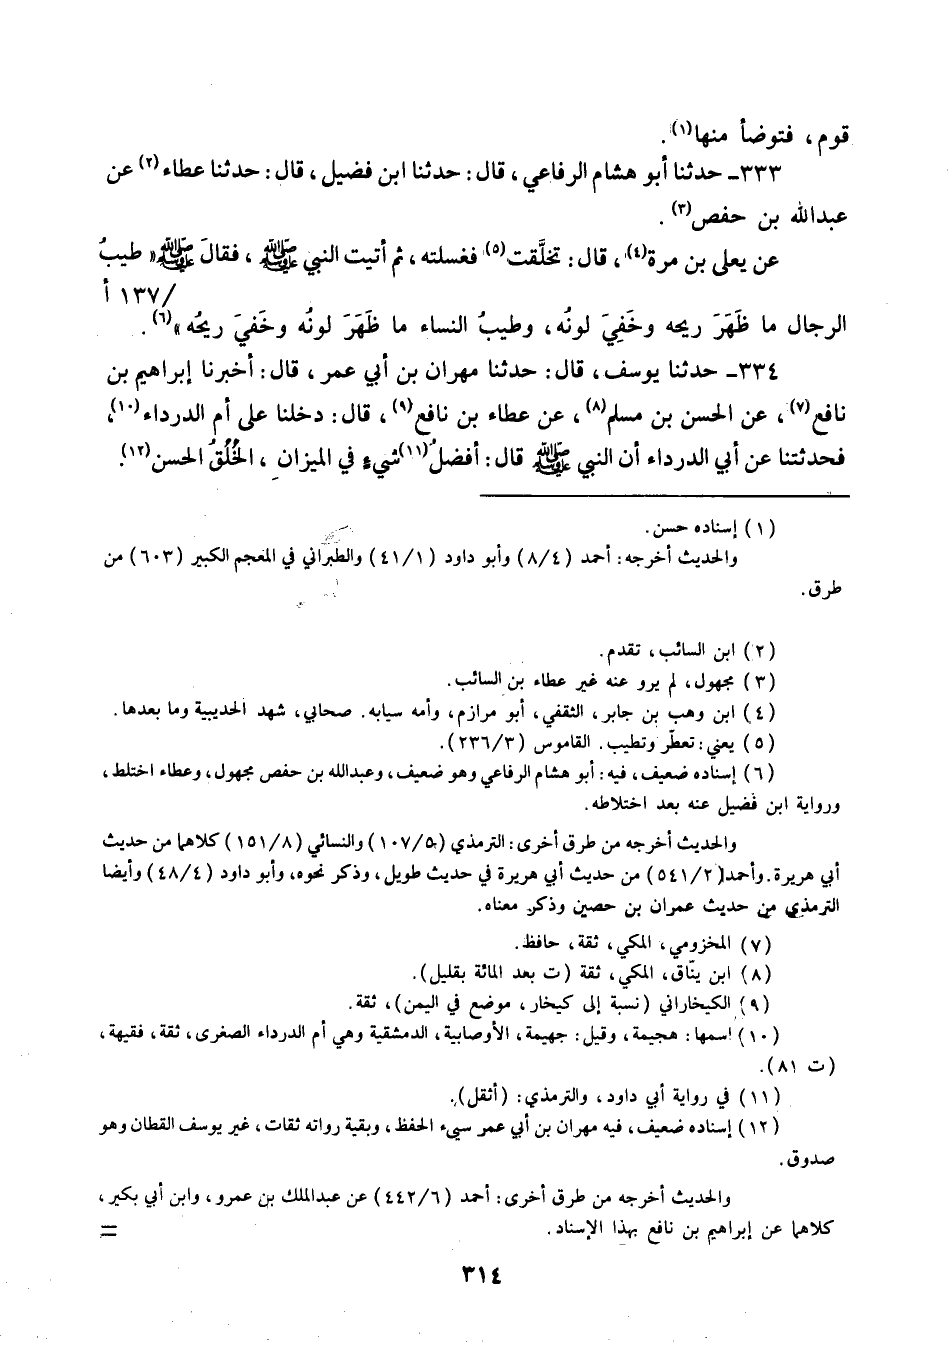 قوم، فتوضأ منها(١).
٣٣٣ـ حدثنا أبو هشام الرفاعي، قال: حدثنا ابن فضيل، قال: حدثنا عطاء(٢) عن
عبدالله بن حفص(٣).
عن يعلى بن مرة(٤)، قال: تخلَّقت(٥) فغسلته، ثم أتيت النبي ﷺ، فقالَ ﷺ «طيبُ
/١٣٧ أ
الرجال ما ظَهَرَ ريحه وخَفِيَ لونُه، وطيبُ النساء ما ظَهَرَ لونُه وخَفيَ ريحُه»(٦).
٣٣٤ـ حدثنا يوسف، قال: حدثنا مهران بن أبي عمر، قال: أخبرنا إبراهيم بن
نافع(٧)، عن الحسن بن مسلم(٨)، عن عطاء بن نافع(٩)، قال: دخلنا على أم الدرداء(١٠)،
فحدثتنا عن أبي الدرداء أن النبي ﷺ قال: أفضلُ(١١) شيءٍ في الميزان، الخُلُقُ الحسن(١٢).
(١) إسناده حسن.
والحديث أخرجه: أحمد (٨/٤) وأبو داود (٤١/١) والطبراني في المعجم الكبير (٦٠٣) من
طرق.
(٢) ابن السائب، تقدم.
(٣) مجهول، لم يرو عنه غير عطاء بن السائب.
(٤) ابن وهب بن جابر، الثقفي، أبو مرازم، وأمه سيابه. صحابي، شهد الحديبية وما بعدها.
(٥) يعني: تعطّر وتطيب. القاموس (٢٣٦/٣).
(٦) إسناده ضعيف، فيه: أبو هشام الرفاعي وهو ضعيف، وعبدالله بن حفص مجهول، وعطاء اختلط،
ورواية ابن فضيل عنه بعد اختلاطه.
والحديث أخرجه من طرق أخرى: الترمذي (١٠٧/٥) والنسائي (١٥١/٨) كلاهما من حديث
أبي هريرة. وأحمد (٥٤١/٢) من حديث أبي هريرة في حديث طويل، وذكر نحوه، وأبو داود (٤٨/٤) وأيضا
الترمذي من حديث عمران بن حصين وذكر معناه.
(٧) المخزومي، المكي، ثقة، حافظ.
(٨) ابن ينّاق، المكي، ثقة (ت بعد المائة بقليل).
(٩) الكيخاراني (نسبة إلى كيخار، موضع في اليمن)، ثقة.
(١٠) اسمها: هجيمة، وقيل: جهيمة، الأوصابية، الدمشقية وهي أم الدرداء الصغرى، ثقة، فقيهة،
(ت ٨١).
(١١) في رواية أبي داود، والترمذي: (أثقل).
(١٢) إسناده ضعيف، فيه مهران بن أبي عمر سيىء الحفظ، وبقية رواته ثقات، غير يوسف القطان وهو
صدوق.
والحديث أخرجه من طرق أخرى: أحمد (٤٤٢/٦) عن عبدالملك بن عمرو، وابن أبي بكير،
كلاهما عن إبراهيم بن نافع بهذا الإسناد. =
٣١٤